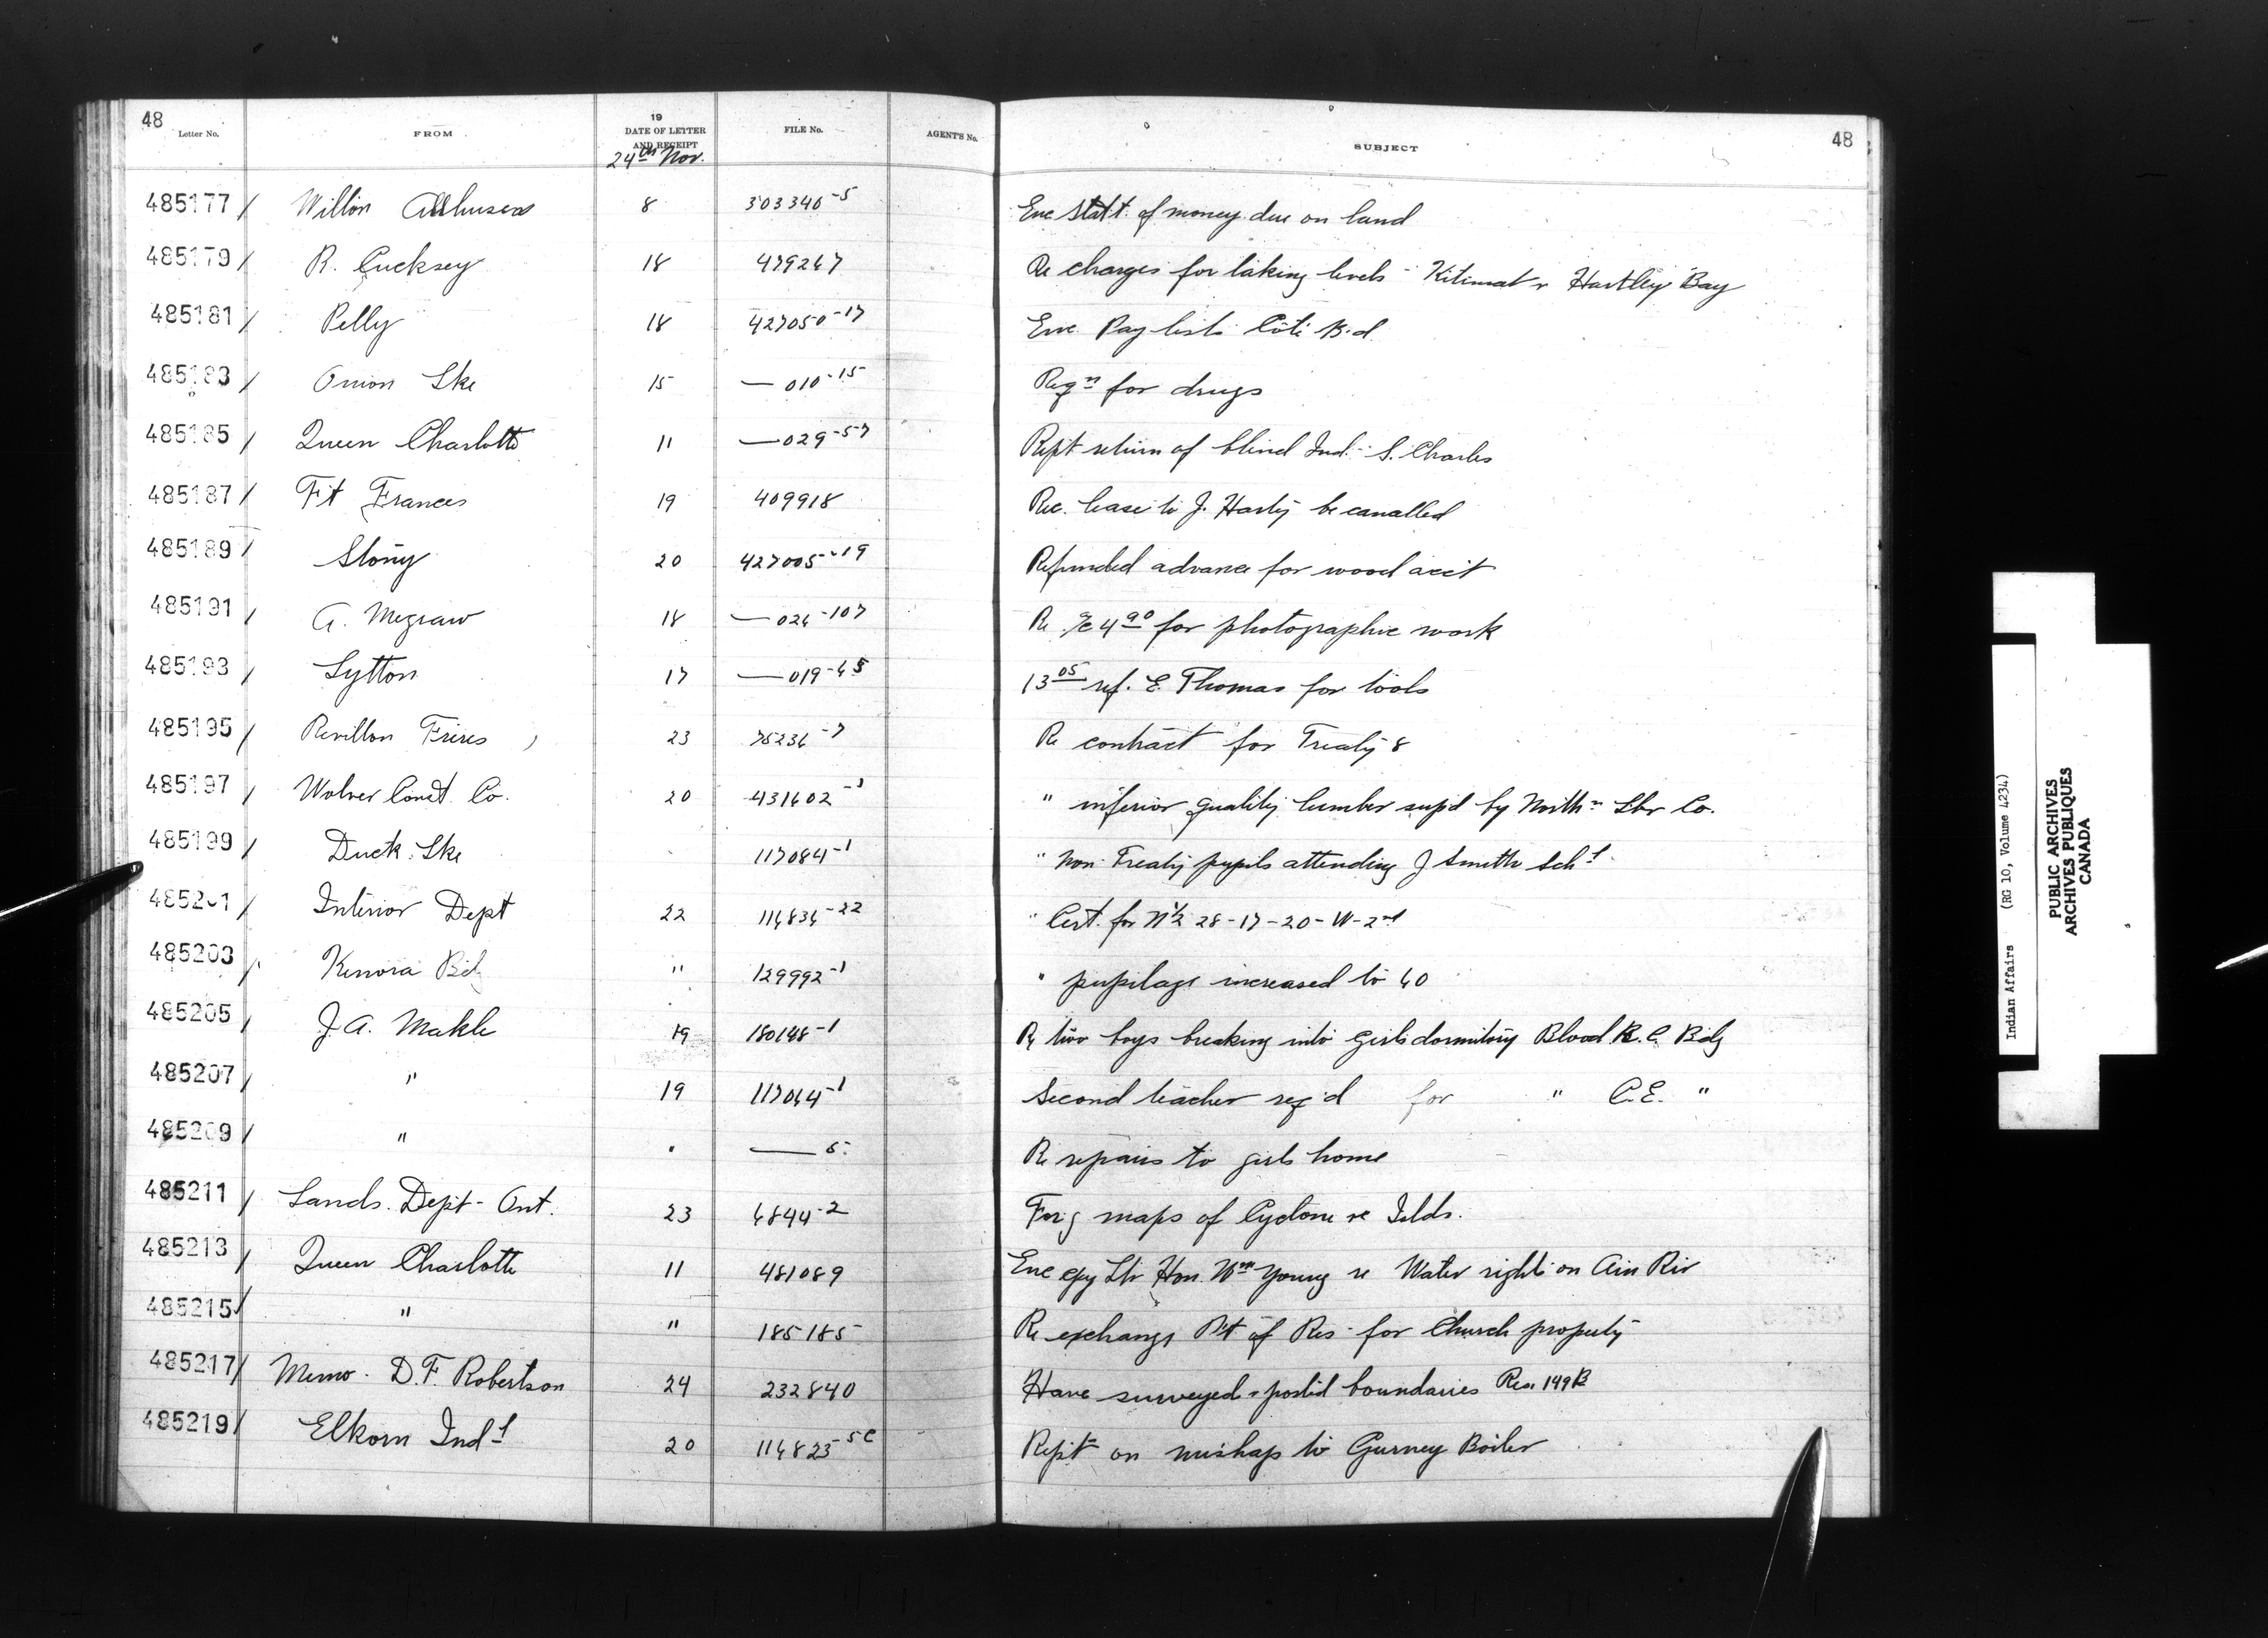 48
Letter No. FROM 19 DATE OF LETTER AND RECEIPT FILE No. AGENT'S No. SUBJECT 48
24th Nov.
485177 / Willon Allhusen 8 303340-5 Enc Statt. of money due on land
485179 / R. Cucksey 18 479267 Re charges for taking levels - Kitimat & Hartley Bay
485181 / Pelly 18 427050-17 Enc. Pay lists Coté B'd
485183 / Onion Lke 15 — 010-15 Reqn for drugs
485185 / Queen Charlotte 11 — 029-57 Rept return of blind Ind. S. Charles
485187 / Ft Frances 19 409918 Rec. lease to J. Harty be cancelled
485189 / Stony 20 427005-19 Refunded advance for wood acct
485191 / A. Megraw 18 — 026-107 Re a/c 4 90 for photographic work
485193 / Lytton 17 — 019-65 13 05 ref. E. Thomas for tools
485195 / Revillon Freres 23 75236-7 Re contract for Treaty 8
485197 / Const. Co. 20 431602-1 " inferior quality lumber sup'd by Northn Lbr Co.
485199 / Duck Lke 117084-1 " Non-Treaty pupils attending J Smith Schl
485201 / Interior Dept 22 116836-22 " Cert. for N½ 28-17-20-W-2nd
485203 / Kenora Bdg " 129992-1 " pupilage increased to 60
485205 / J.A. Markle 19 180148-1 Re two boys breaking into girls dormitory Blood R.C. Bdg
485207 / " 19 117064-1 Second teacher req'd for " C.E. "
485209 / " " — 5 Re repairs to girls home
485211 / Lands Dept - Ont. 23 6844-2 For'g maps of Cyclone re Islds.
485213 / Queen Charlotte 11 481089 Enc cpy Ltr Hon. Wm Young re Water rights on Ain Riv
485215 / " " 185185 Re exchange Pt of Res for Church property
485217 / Memo. D.F. Robertson 24 232840 Have surveyed & posted boundaries Res. 149B
485219 / Elkorn Indl 20 116823-5c Rept on mishap to Gurney Boiler
Indian Affairs (RG 10, Volume 4234)
PUBLIC ARCHIVES
ARCHIVES PUBLIQUES
CANADA